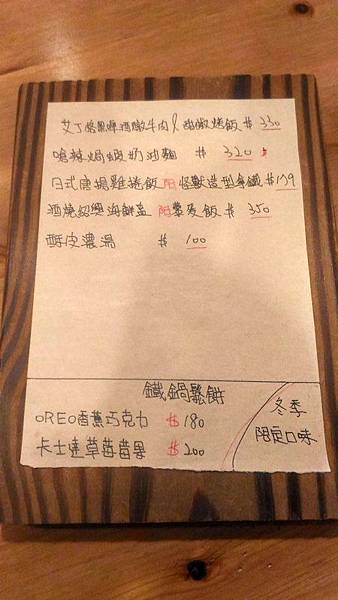 艾丁格黑啤酒燉牛肉&甜椒烤飯 $330
嗆辣焗蝦奶油麵 $ 320
日式唐揚雞捲飯 附怪獸造型拿鐵 $199
酒燒紹興海鮮盅 附藜麥飯 $ 350
酥皮濃湯 $ 100
鐵鍋鬆餅
OREO香蕉巧克力 $180
卡士達草莓莓果 $200
冬季
限定口味